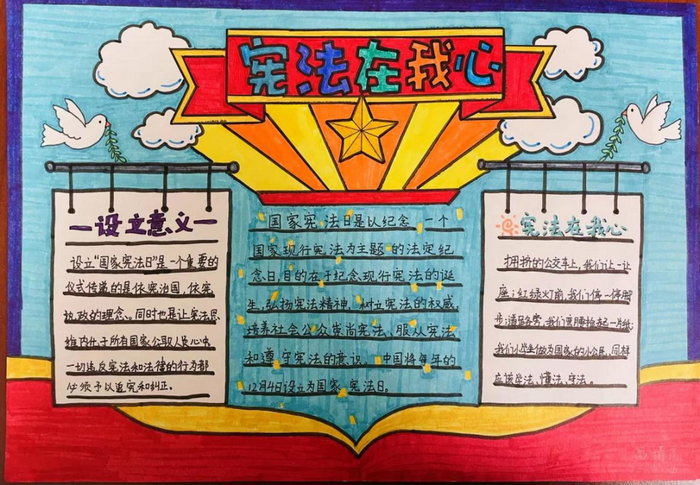 宪法在我心
设立意义
设立"国家宪法日"是一个重要的
仪式传递的是依宪治国、依宪
执政的理念。同时也是让宪法思
维内化于所有国家公职人员心中。
一切违反宪法和法律的行为都
必须予以追究和纠正。
国家宪法日是以纪念 一个
国家现行宪法为主题 的法定纪
念日,目的在于纪念现行宪法的诞
生,弘扬宪法精神、树立宪法的权威,
培养社会公众崇尚宪法、服从宪法
和遵守宪法的意识。中国将每年的
12月4日设立为国家宪法日。
宪法在我心
拥挤的公交车上,我们让一让
座;红绿灯前,我们停一停脚
步;遇见
我们弯腰拾起一片纸;
我们从小做为国家的小公民,同样
应该学法、懂法、守法。